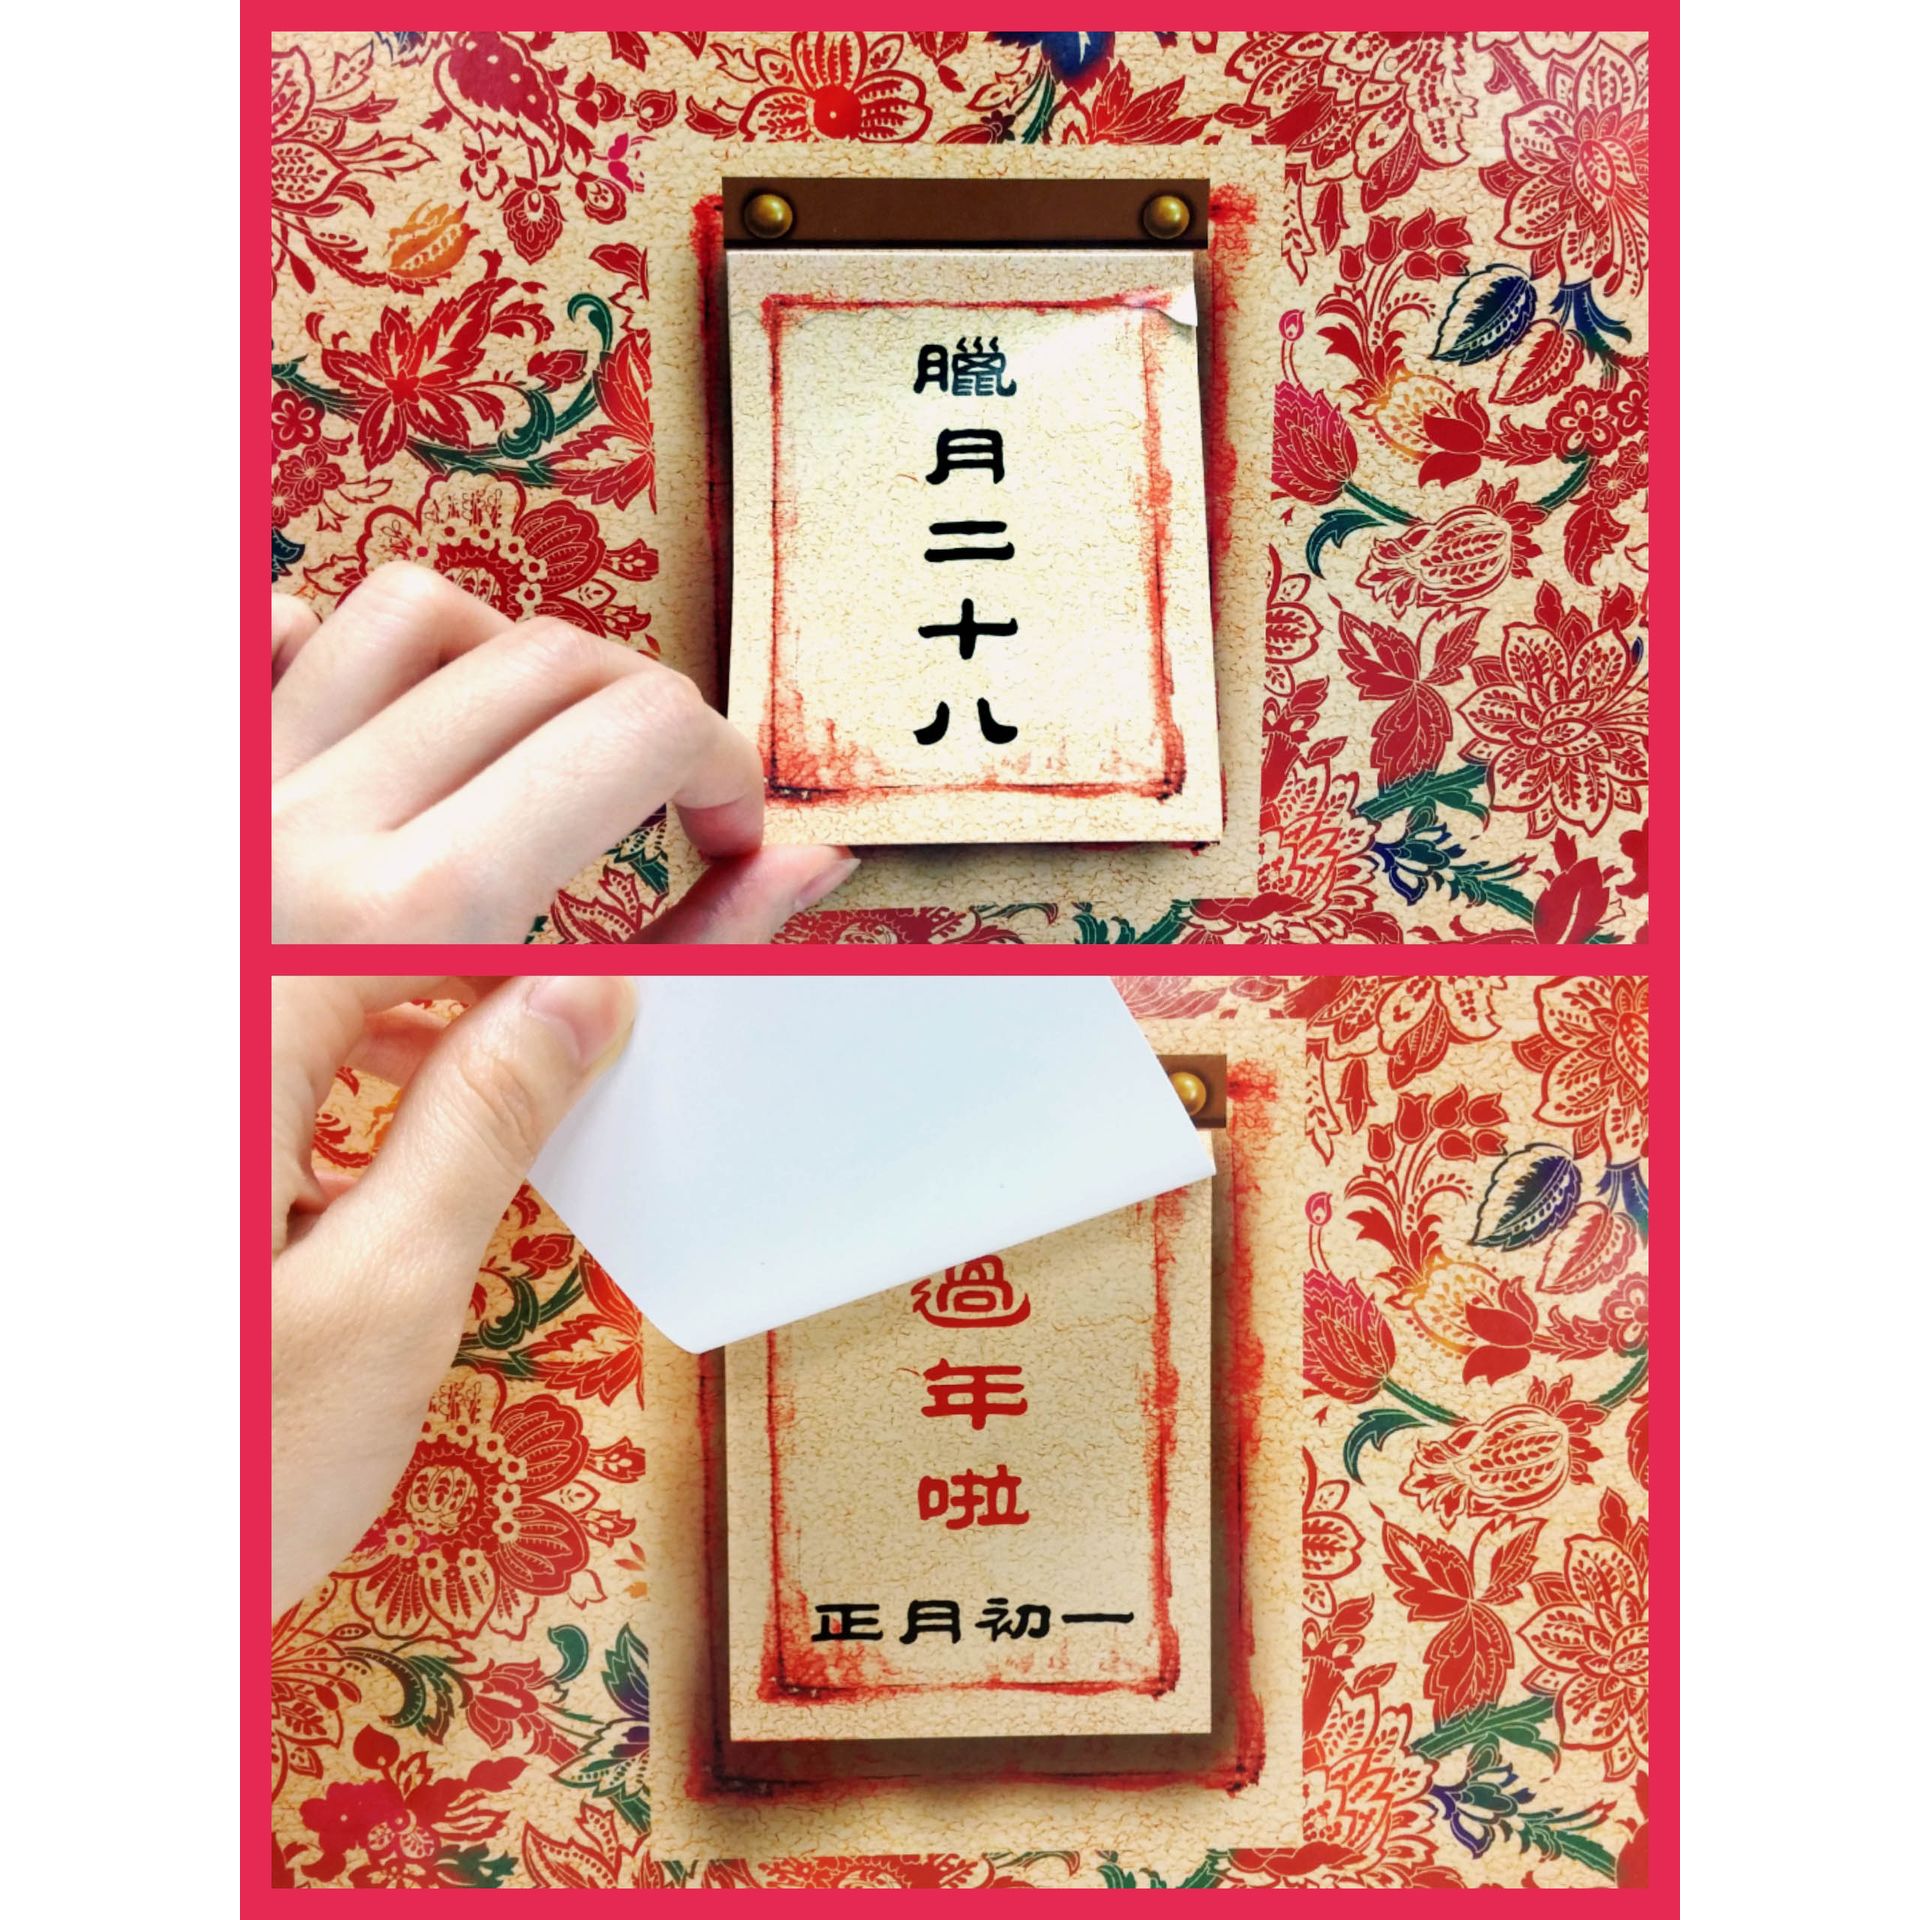 臘月二十八
過年啦
正月初一